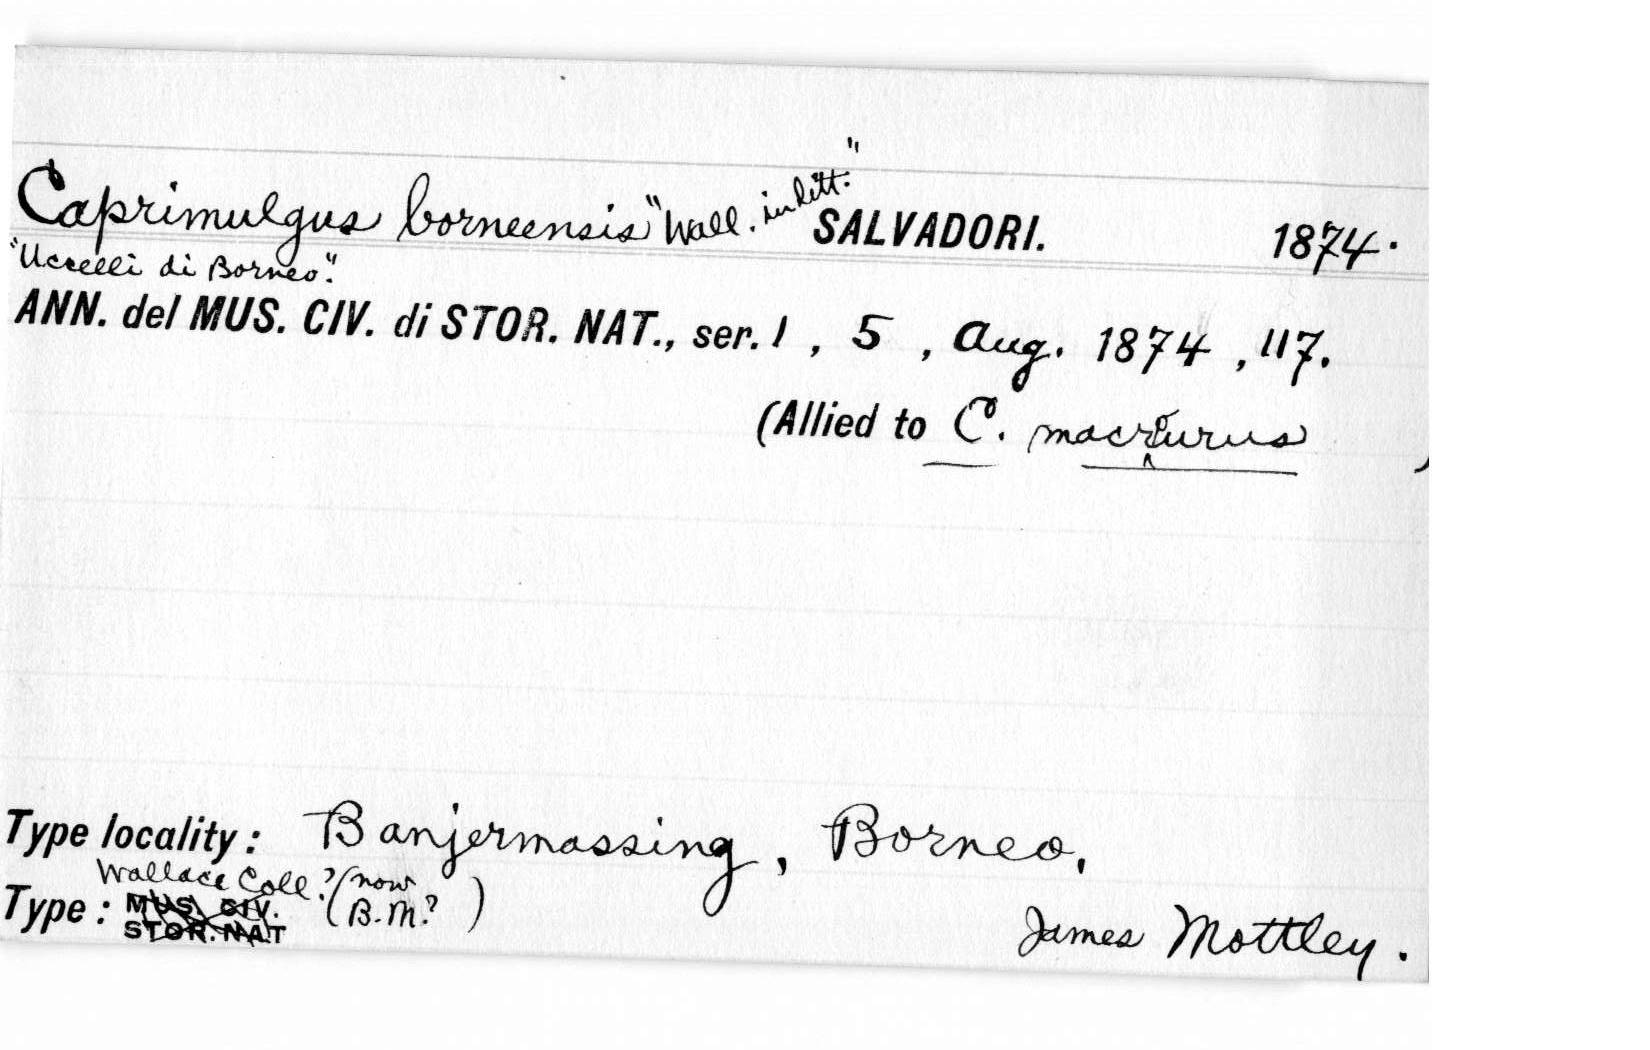 Caprimulgus borneensis "Wall. in litt." SALVADORI. 1874.
"Uccelli di Borneo".
ANN. del MUS. CIV. di STOR. NAT., ser. 1 , 5 , Aug. 1874 , 117.
(Allied to C. macrourus )
Type locality: Banjermassing, Borneo,
Wallace Coll.? (now B.M.?)
Type: MUS. CIV. STOR. NAT
James Mottley.